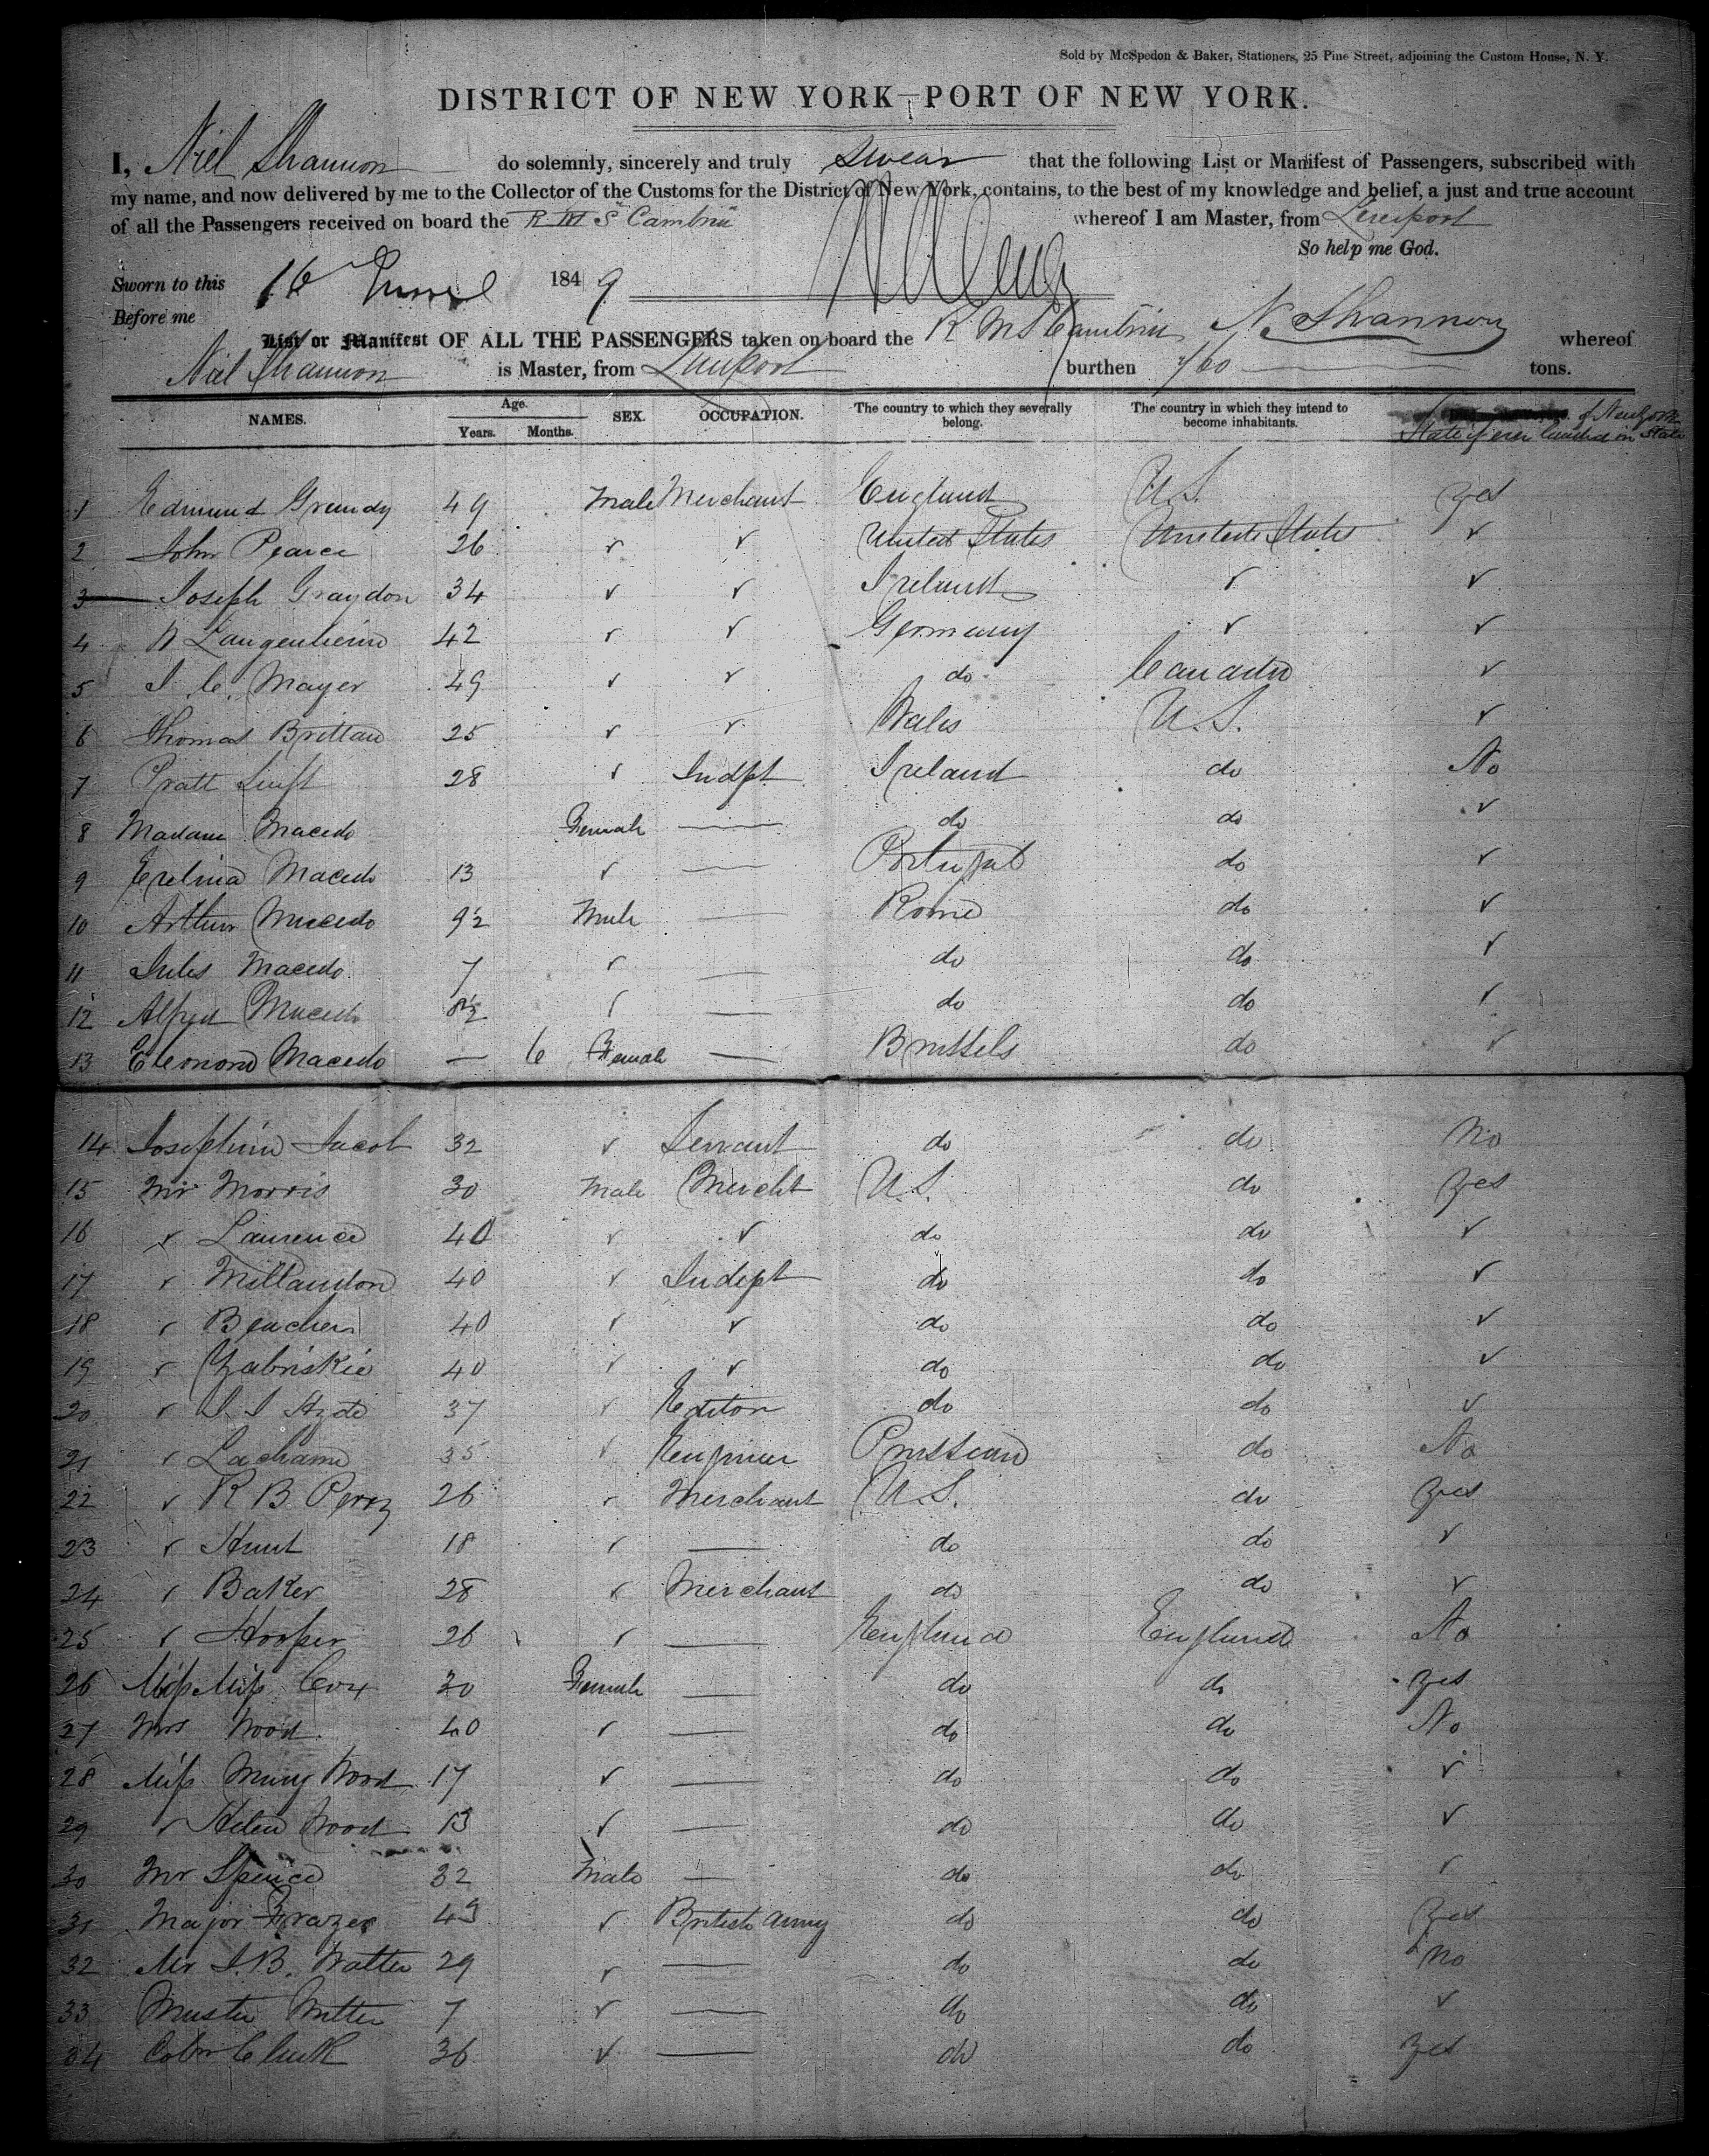 Sold by McSpedon & Baker, Stationers, 25 Pine Street, adjoining the Custom House, N. Y.
DISTRICT OF NEW YORK—PORT OF NEW YORK.
I, Niel Shannon do solemnly, sincerely and truly swear that the following List or Manifest of Passengers, subscribed with
my name, and now delivered by me to the Collector of the Customs for the District of New York, contains, to the best of my knowledge and belief, a just and true account
of all the Passengers received on board the R M S Cambria whereof I am Master, from Liverpool
So help me God.
Sworn to this 16 1849
Before me
List or Manifest OF ALL THE PASSENGERS taken on board the R M S Cambria N. Shannon whereof
Niel Shannon is Master, from Liverpool burthen tons.
NAMES. Age. Years. Months. SEX. OCCUPATION. The country to which they severally belong. The country in which they intend to become inhabitants. of New York State if ever landed in State
1 Edmund Grundy 49 Male Merchant England U.S. Yes
2 John Pearce 26 ✓ ✓ United States United States ✓
3 Joseph Graydon 34 ✓ ✓ Ireland ✓ ✓
4 Langenheim 42 ✓ ✓ Germany ✓ ✓
5 J. C. Mayer 49 ✓ ✓ do Canada ✓
6 Thomas Brittan 25 ✓ ✓ Wales U.S. ✓
7 Pratt Swift 28 ✓ Indpt Ireland do No
8 Madam Macedo Female — do do ✓
9 Macedo 13 ✓ — Portugal do ✓
10 Arthur Macedo 9½ Male — Rome do ✓
11 Jules Macedo 7 ✓ — do do ✓
12 Alfred Macedo ✓ — do do ✓
13 Eleonora Macedo — 6 Female — Brussels do ✓
14 Josephine Jacob 32 ✓ Servant do do No
15 Mr Morris 30 Male Mercht U.S. do Yes
16 ✓ Laurence 40 ✓ ✓ do do ✓
17 ✓ Millaudon 40 ✓ Indept do do ✓
18 ✓ Beacher 40 ✓ ✓ do do ✓
19 ✓ Zabriskie 40 ✓ ✓ do do ✓
20 ✓ Hyde 37 ✓ Editor do do ✓
21 ✓ 35 ✓ Engineer Prussian do No
22 ✓ R B Perry 26 ✓ Merchant U.S. do Yes
23 ✓ Hunt 18 ✓ — do do ✓
24 ✓ Baker 28 ✓ Merchant do do ✓
25 ✓ Hooper 26 ✓ — England England No
26 Miss Miss Cox 30 Female — do do Yes
27 Mrs Wood 40 ✓ — do do No
28 Miss Mary Wood 17 ✓ — do do ✓
29 ✓ Helen Wood 13 ✓ — do do ✓
30 Mr Spence 32 Male — do do ✓
31 Major Frazer 43 ✓ British Army do do Yes
32 Mr J. B. Watter 29 ✓ — do do No
33 Master Watter 7 ✓ — do do ✓
34 36 ✓ — do do Yes